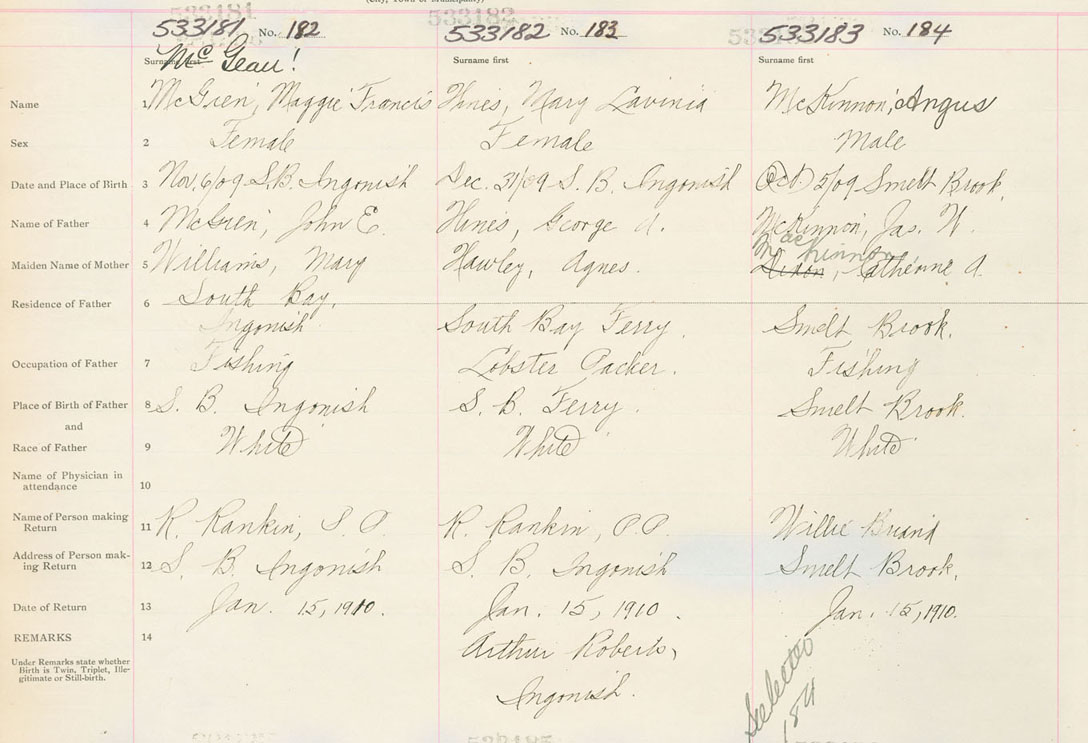 (City, Town or Municipality)
533181 533182
533181 No. 182 533182 No. 183 533183 No. 184
McGean!
Surname first Surname first Surname first
Name 1 McGren, Maggie Francis Hines, Mary Lavinia McKinnon, Angus
Sex 2 Female Female Male
Date and Place of Birth 3 Nov. 6/09 S.B. Ingonish Dec. 31/09 S. B. Ingonish Oct. 5/09 Smelt Brook.
Name of Father 4 McGren, John E. Hines, George A. McKinnon, Jas. W.
MacKinnon
Maiden Name of Mother 5 Williams, Mary Hawley, Agnes. Dixon, Catherine A.
Residence of Father 6 South Bay,
Ingonish South Bay Ferry. Smelt Brook.
Occupation of Father 7 Fishing Lobster Packer. Fishing
Place of Birth of Father 8 S. B. Ingonish S. B. Ferry. Smelt Brook.
and
Race of Father 9 White White White
Name of Physician in
attendance 10
Name of Person making
Return 11 R. Rankin, P.P. R. Rankin, P.P. Willie Briand
Address of Person mak-
ing Return 12 S. B. Ingonish S. B. Ingonish Smelt Brook.
Date of Return 13 Jan. 15, 1910. Jan. 15, 1910. Jan. 15, 1910.
REMARKS 14 Arthur Roberts,
Under Remarks state whether
Birth is Twin, Triplet, Ille-
gitimate or Still-birth.
Ingonish.
184